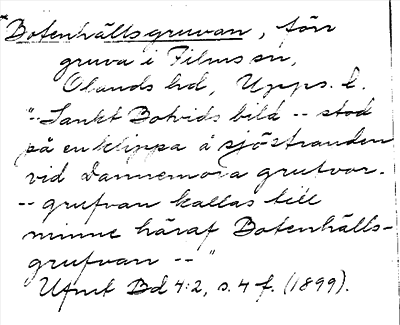 *Botenhällsgruvan, förr
gruva i Films sn,
Olands hd, Upps. l.
"-- Sankt Botvids bild -- stod
på en klippa å sjöstranden
vid Dannemora grufvor.
-- grufvan kallas till
minne häraf Botenhälls-
grufvan --"
Ufmt Bd 4:2, s. 4 f. (1899).